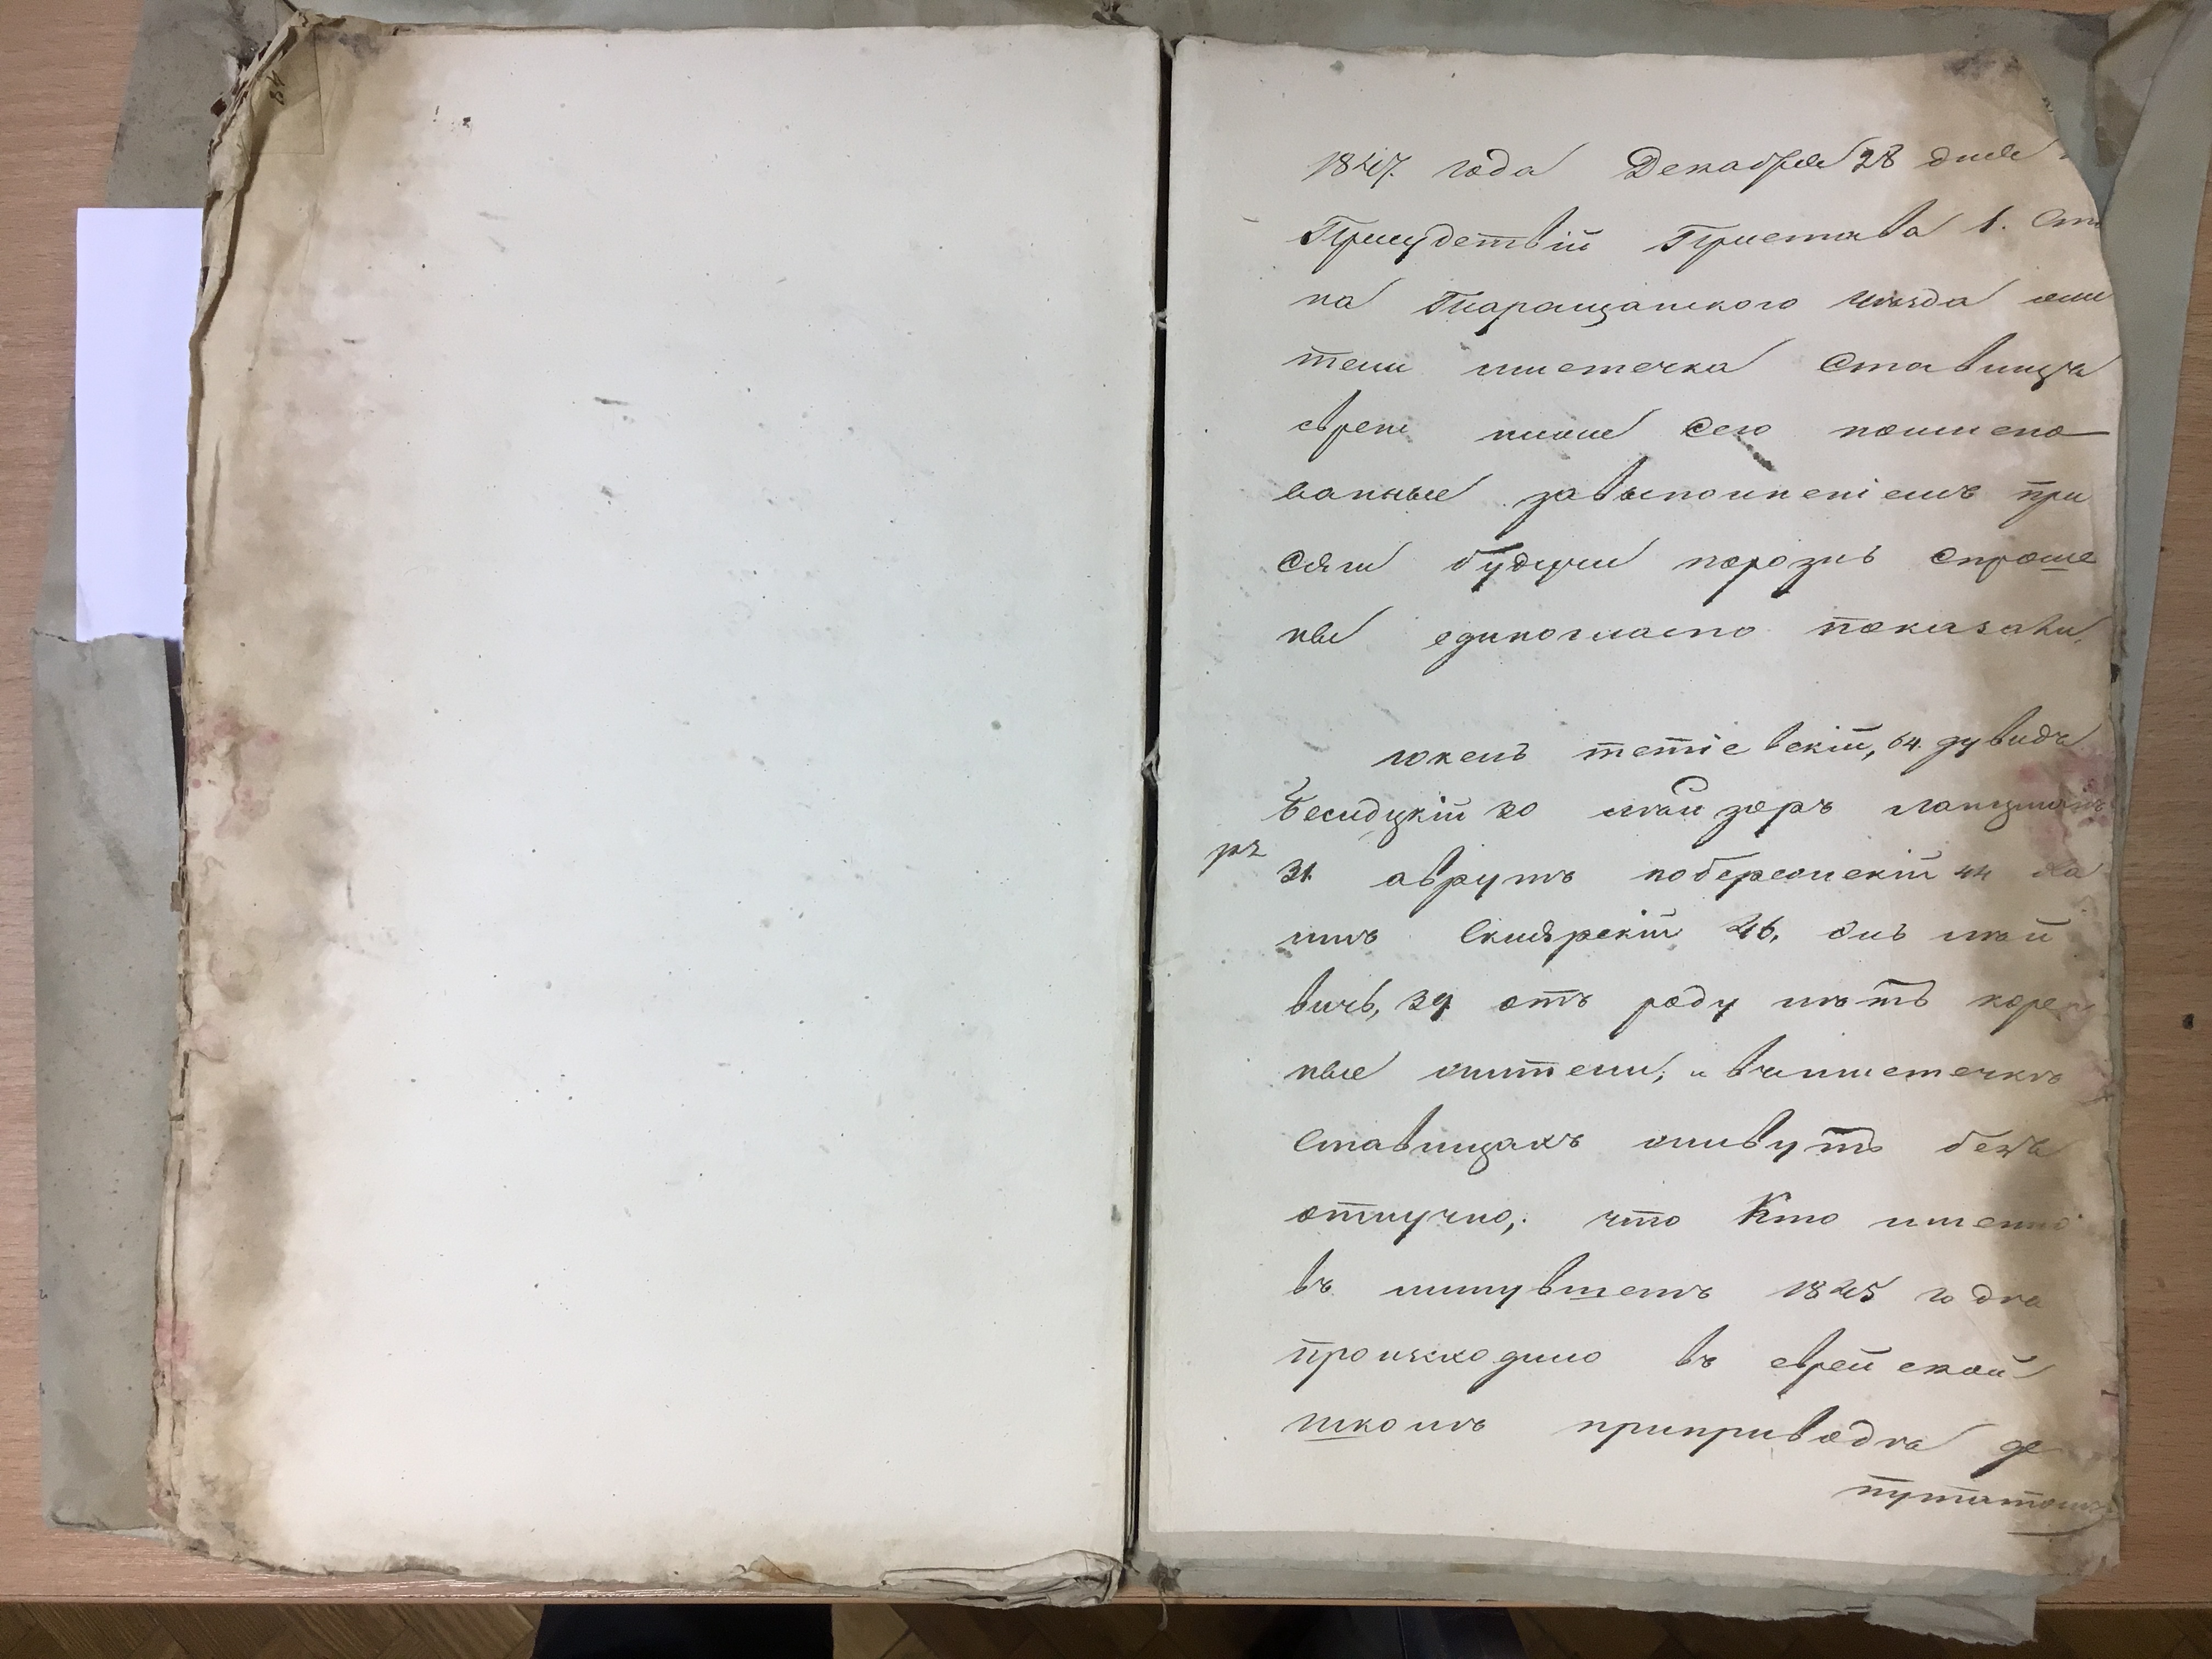 1847. года Декабря 28 дня
Присудствій Пристава 1. Ста
на Таращанского уѣзда жи
тели мистечка Ставищъ
евреи ниже сего поимено
ванные завыполненіемъ при
сяги будучи порознь спроше
ны единогласно показали,
іокель тетіевскій, 64. дувидъ
Бесидцкій 30 лейзоръ ланцман
31. аврумъ побережскій 44 ха
имъ Склярскій 46, лей
вичь, 39 отъ роду лѣтъ корен
ные жители, и вчмистечкѣ
Ставищахъ живутъ безъ
отлучно, что Кто именно
въ минувшемъ 1845 года
происходило въ еврейской
школѣ приприводѣ де
путатомъ